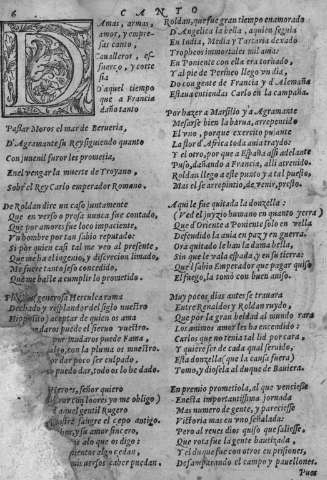 6 CANTO
DAmas, armas,
amor, y empre-
sas canto,
Caualleros, es-
fuerço, y corte
sia
D'aquel tiempo
que a Francia
daño tanto
Passar Moros el mar de Berueria,
D'Agramante su Rey siguiendo quanto
Con juuenil furor les prometia,
En el vengar la muerte de Troyano,
Sobr'el Rey Carlo emperador Romano.
De Roldan dire un caso juntamente
Que en verso o prosa nunca fue contado,
Que por amor fue loco impaciente,
Y u hombre por tan sabio reputado:
Si por quien casi tal me veo al presente,
Que me ha el ingenio, y discrecion limado,
Me fuere tanto seso concedido,
Que me baste a cumplir lo prometido.
generosa Herculea rama
Dechado y resplandor del siglo nuestro
Hippolito) aceptar de quien os ama
daros puede el sieruo vuestro.
daros puede Fama,
con la pluma os muestro.
dar poco ser culpado,
puedo dar, todo os lo he dado.
Heroes, señor quiero
loores yo me obligo)
aquel gentil Rugero
sangre el cepo antigo.
y su amor sincero,
alo que os digo:
algo cedan
versos caber puedan.
Roldan, que fue gran tiempo enamorado
D'Angelica la bella, aquien seguia
En India, Media y Tartaria dexado
Tropheos immortales mil auia:
En Poniente con ella era tornado,
Y al pie de Perineo llego un dia,
Do con gente de Francia y d'Alemaña
Estaua entiendas Carlo en la campaña.
Por hazer a Marsilio y a Agramante
Messarse bien la barua, arrepentido
El uno, por que exercito pujante
La flor d'Africa toda auia traydo:
Y el otro, por que a España assi adelante
Puso, dañando a Francia, alli atreuido.
Roldan llego a este punto y a tal puesto,
Mas el se arrepintio, de venir, presto.
Aqui le fue quitada la donzella:
(Ved el juyzio humano en quanto yerra)
Que d'Oriente a Poniente solo en vella
Defendido la auia en paz y en guerra:
Ora quitado le han la dama bella,
Sin que le vala espada, y en su tierra:
Que'l sabio Emperador que pagar quiso
El fuego, la tomo con buen auiso.
Muy pocos dias antes se trauara
Entre Renaldos y Roldan ruydo,
Que por la gran beldad al mundo rara
Los animos amor les ha encendido:
Carlos que no tenia tal lid por cara,
Y quiere ser de cada qual seruido,
Esta donzella (que la causa fuera)
Tomo, y diosela al duque de Bauiera.
En premio prometiola, al que venciesse
En esta importantissima jornada
Mas numero de gente, y pareciesse
Victoria mas en uno señalada:
Pero al reues dire quiso que saliesse,
Que rota fue la gente bautizada,
Y el duque fue con otros en prisiones,
Desamparando el campo y pauellones.
Pues